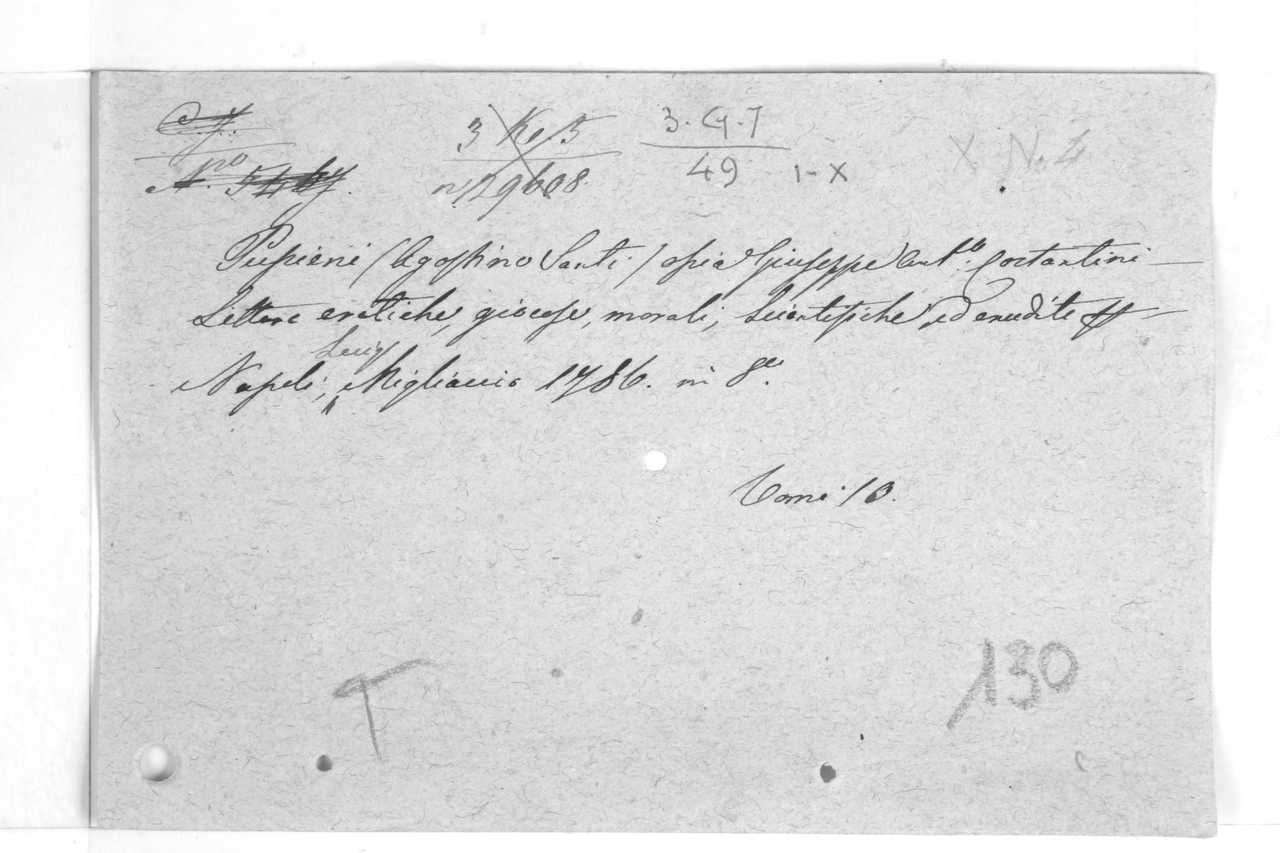 3 Ke 5 3. G. 7 X N. 4
nº 19608 49 I-X
Pupieni (Agostino Santi) ossia Giuseppe Ant.º Costantini
Lettere critiche, giocose, morali, Scientifiche, ed erudite
Luigi
Napoli, Migliaccio 1786. in 8º.
Tomi 10.
T 130